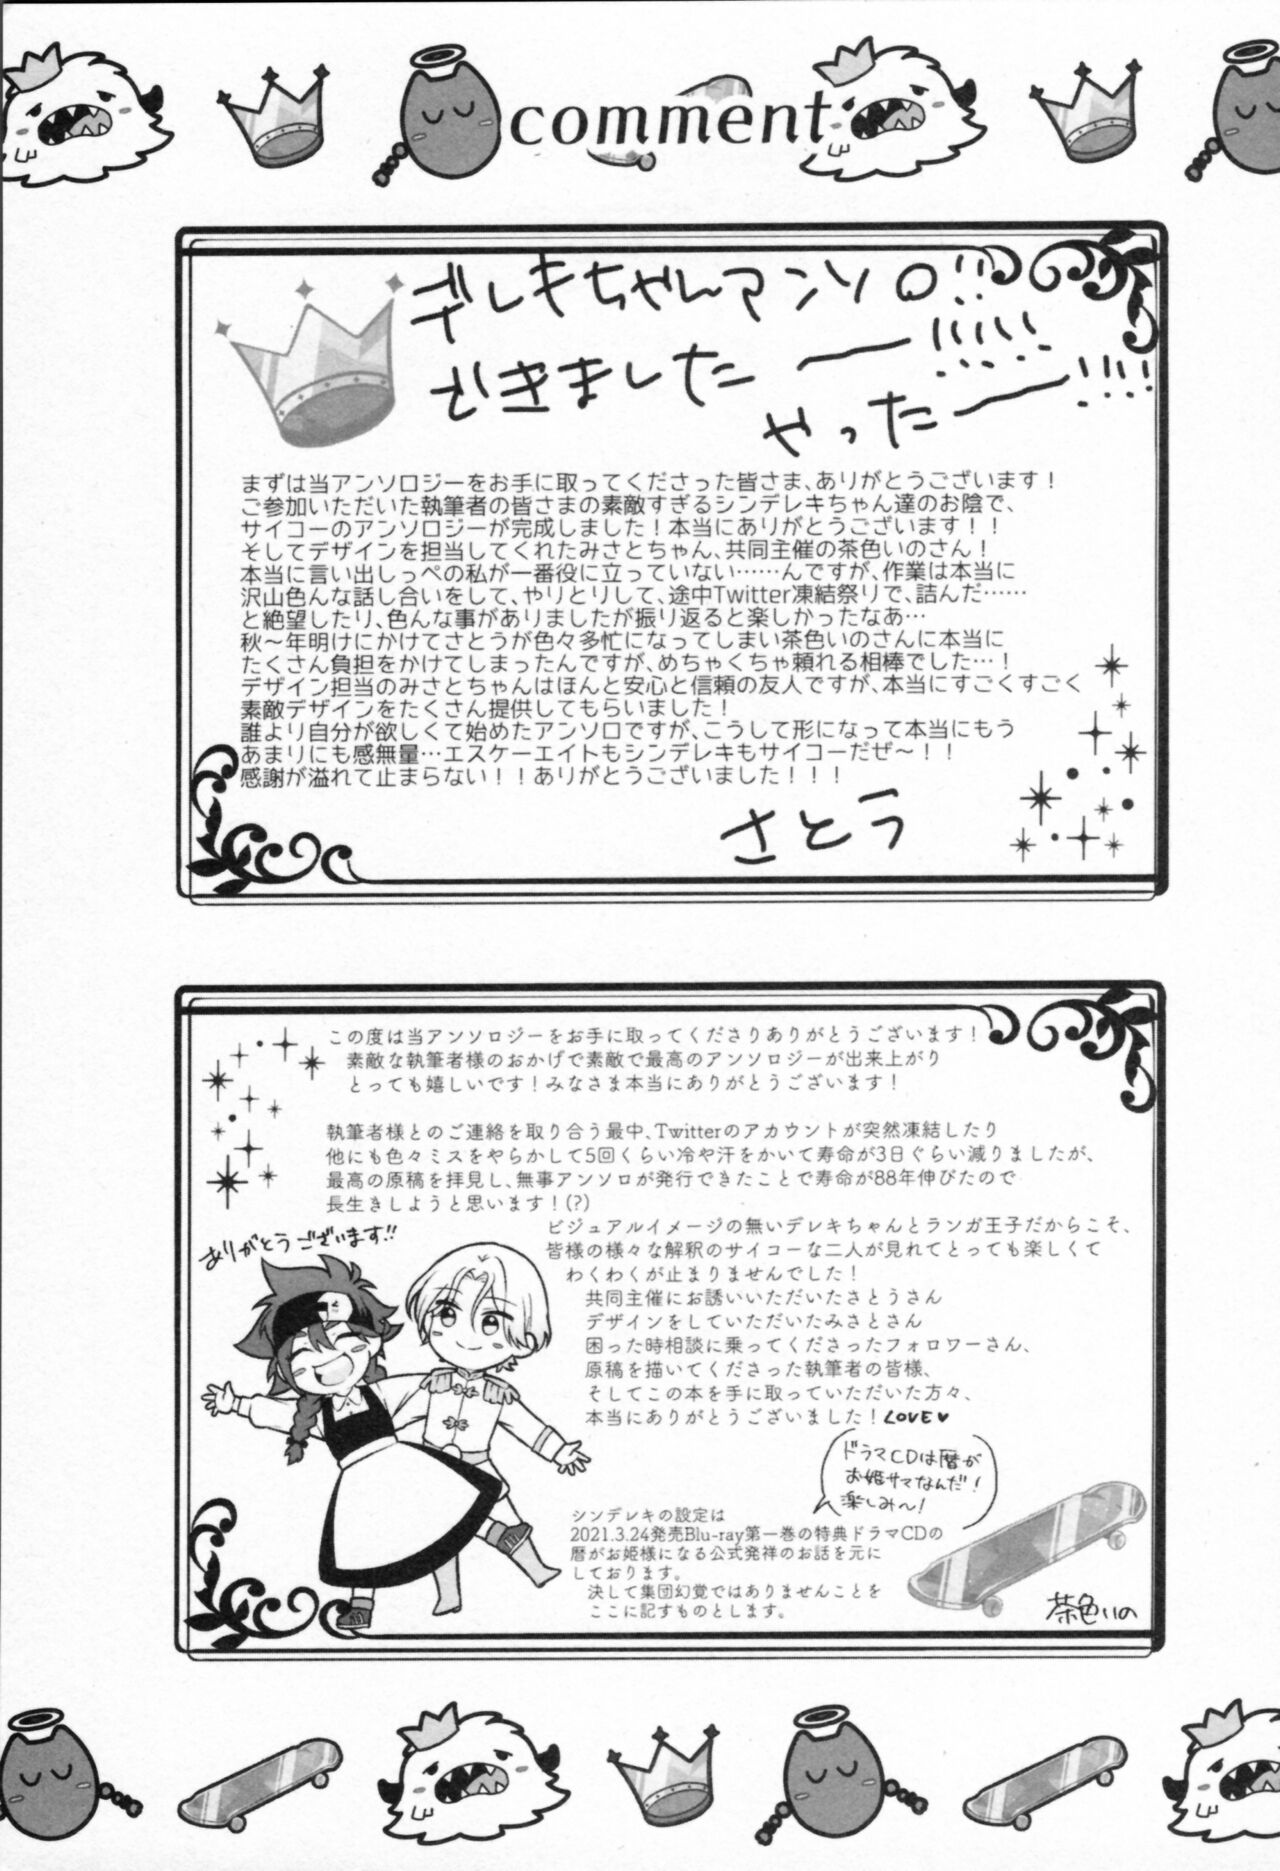 comment
デレキちゃんアンソロ!!
できましたー!!!!!
やったー!!!!
まずは当アンソロジーをお手に取ってくださった皆さま、ありがとうございます！
ご参加いただいた執筆者の皆さまの素敵すぎるシンデレキちゃん達のお陰で、
サイコーのアンソロジーが完成しました！本当にありがとうございます！！
そしてデザインを担当してくれたみさとちゃん、共同主催の茶色いのさん！
本当に言い出しっぺの私が一番役に立っていない……んですが、作業は本当に
沢山色んな話し合いをして、やりとりして、途中Twitter凍結祭りで、詰んだ……
と絶望したり、色んな事がありましたが振り返ると楽しかったなあ…
秋～年明けにかけてさとうが色々多忙になってしまい茶色いのさんに本当に
たくさん負担をかけてしまったんですが、めちゃくちゃ頼れる相棒でした…！
デザイン担当のみさとちゃんはほんと安心と信頼の友人ですが、本当にすごくすごく
素敵デザインをたくさん提供してもらいました！
誰より自分が欲しくて始めたアンソロですが、こうして形になって本当にもう
あまりにも感無量…エスケーエイトもシンデレキもサイコーだぜ～！！
感謝が溢れて止まらない！！ありがとうございました！！！
さとう
この度は当アンソロジーをお手に取ってくださりありがとうございます！
素敵な執筆者様のおかげで素敵で最高のアンソロジーが出来上がり
とっても嬉しいです！みなさま本当にありがとうございます！
執筆者様とのご連絡を取り合う最中、Twitterのアカウントが突然凍結したり
他にも色々ミスをやらかして5回くらい冷や汗をかいて寿命が3日ぐらい減りましたが、
最高の原稿を拝見し、無事アンソロが発行できたことで寿命が88年伸びたので
長生きしようと思います！(?)
ありがとうございます!!
ビジュアルイメージの無いデレキちゃんとランガ王子だからこそ、
皆様の様々な解釈のサイコーな二人が見れてとっても楽しくて
わくわくが止まりませんでした！
共同主催にお誘いいただいたさとうさん
デザインをしていただいたみさとさん
困った時相談に乗ってくださったフォロワーさん、
原稿を描いてくださった執筆者の皆様、
そしてこの本を手に取っていただいた方々、
本当にありがとうございました！LOVE♥
ドラマCDは暦が
お姫サマなんだ!
楽しみ〜!
シンデレキの設定は
2021.3.24発売Blu-ray第一巻の特典ドラマCDの
暦がお姫様になる公式発祥のお話を元に
しております。
決して集団幻覚ではありませんことを
ここに記すものとします。
茶色いの